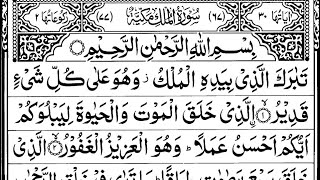 اٰیَاتُهَا ۳۰ (۶۷) سُوْرَةُ الْمُلْكِ مَكِّیَّةٌ (۷۷) رُكُوْعَاتُهَا ۲
بِسْمِ اللّٰهِ الرَّحْمٰنِ الرَّحِیْمِ
تَبٰرَكَ الَّذِیْ بِیَدِهِ الْمُلْكُ ؗ وَهُوَ عَلٰی كُلِّ شَیْءٍ
قَدِیْرُۙ ۝۱ الَّذِیْ خَلَقَ الْمَوْتَ وَالْحَیٰوةَ لِیَبْلُوَكُمْ
اَیُّكُمْ اَحْسَنُ عَمَلًا ؕ وَهُوَ الْعَزِیْزُ الْغَفُوْرُۙ ۝۲ الَّذِیْ